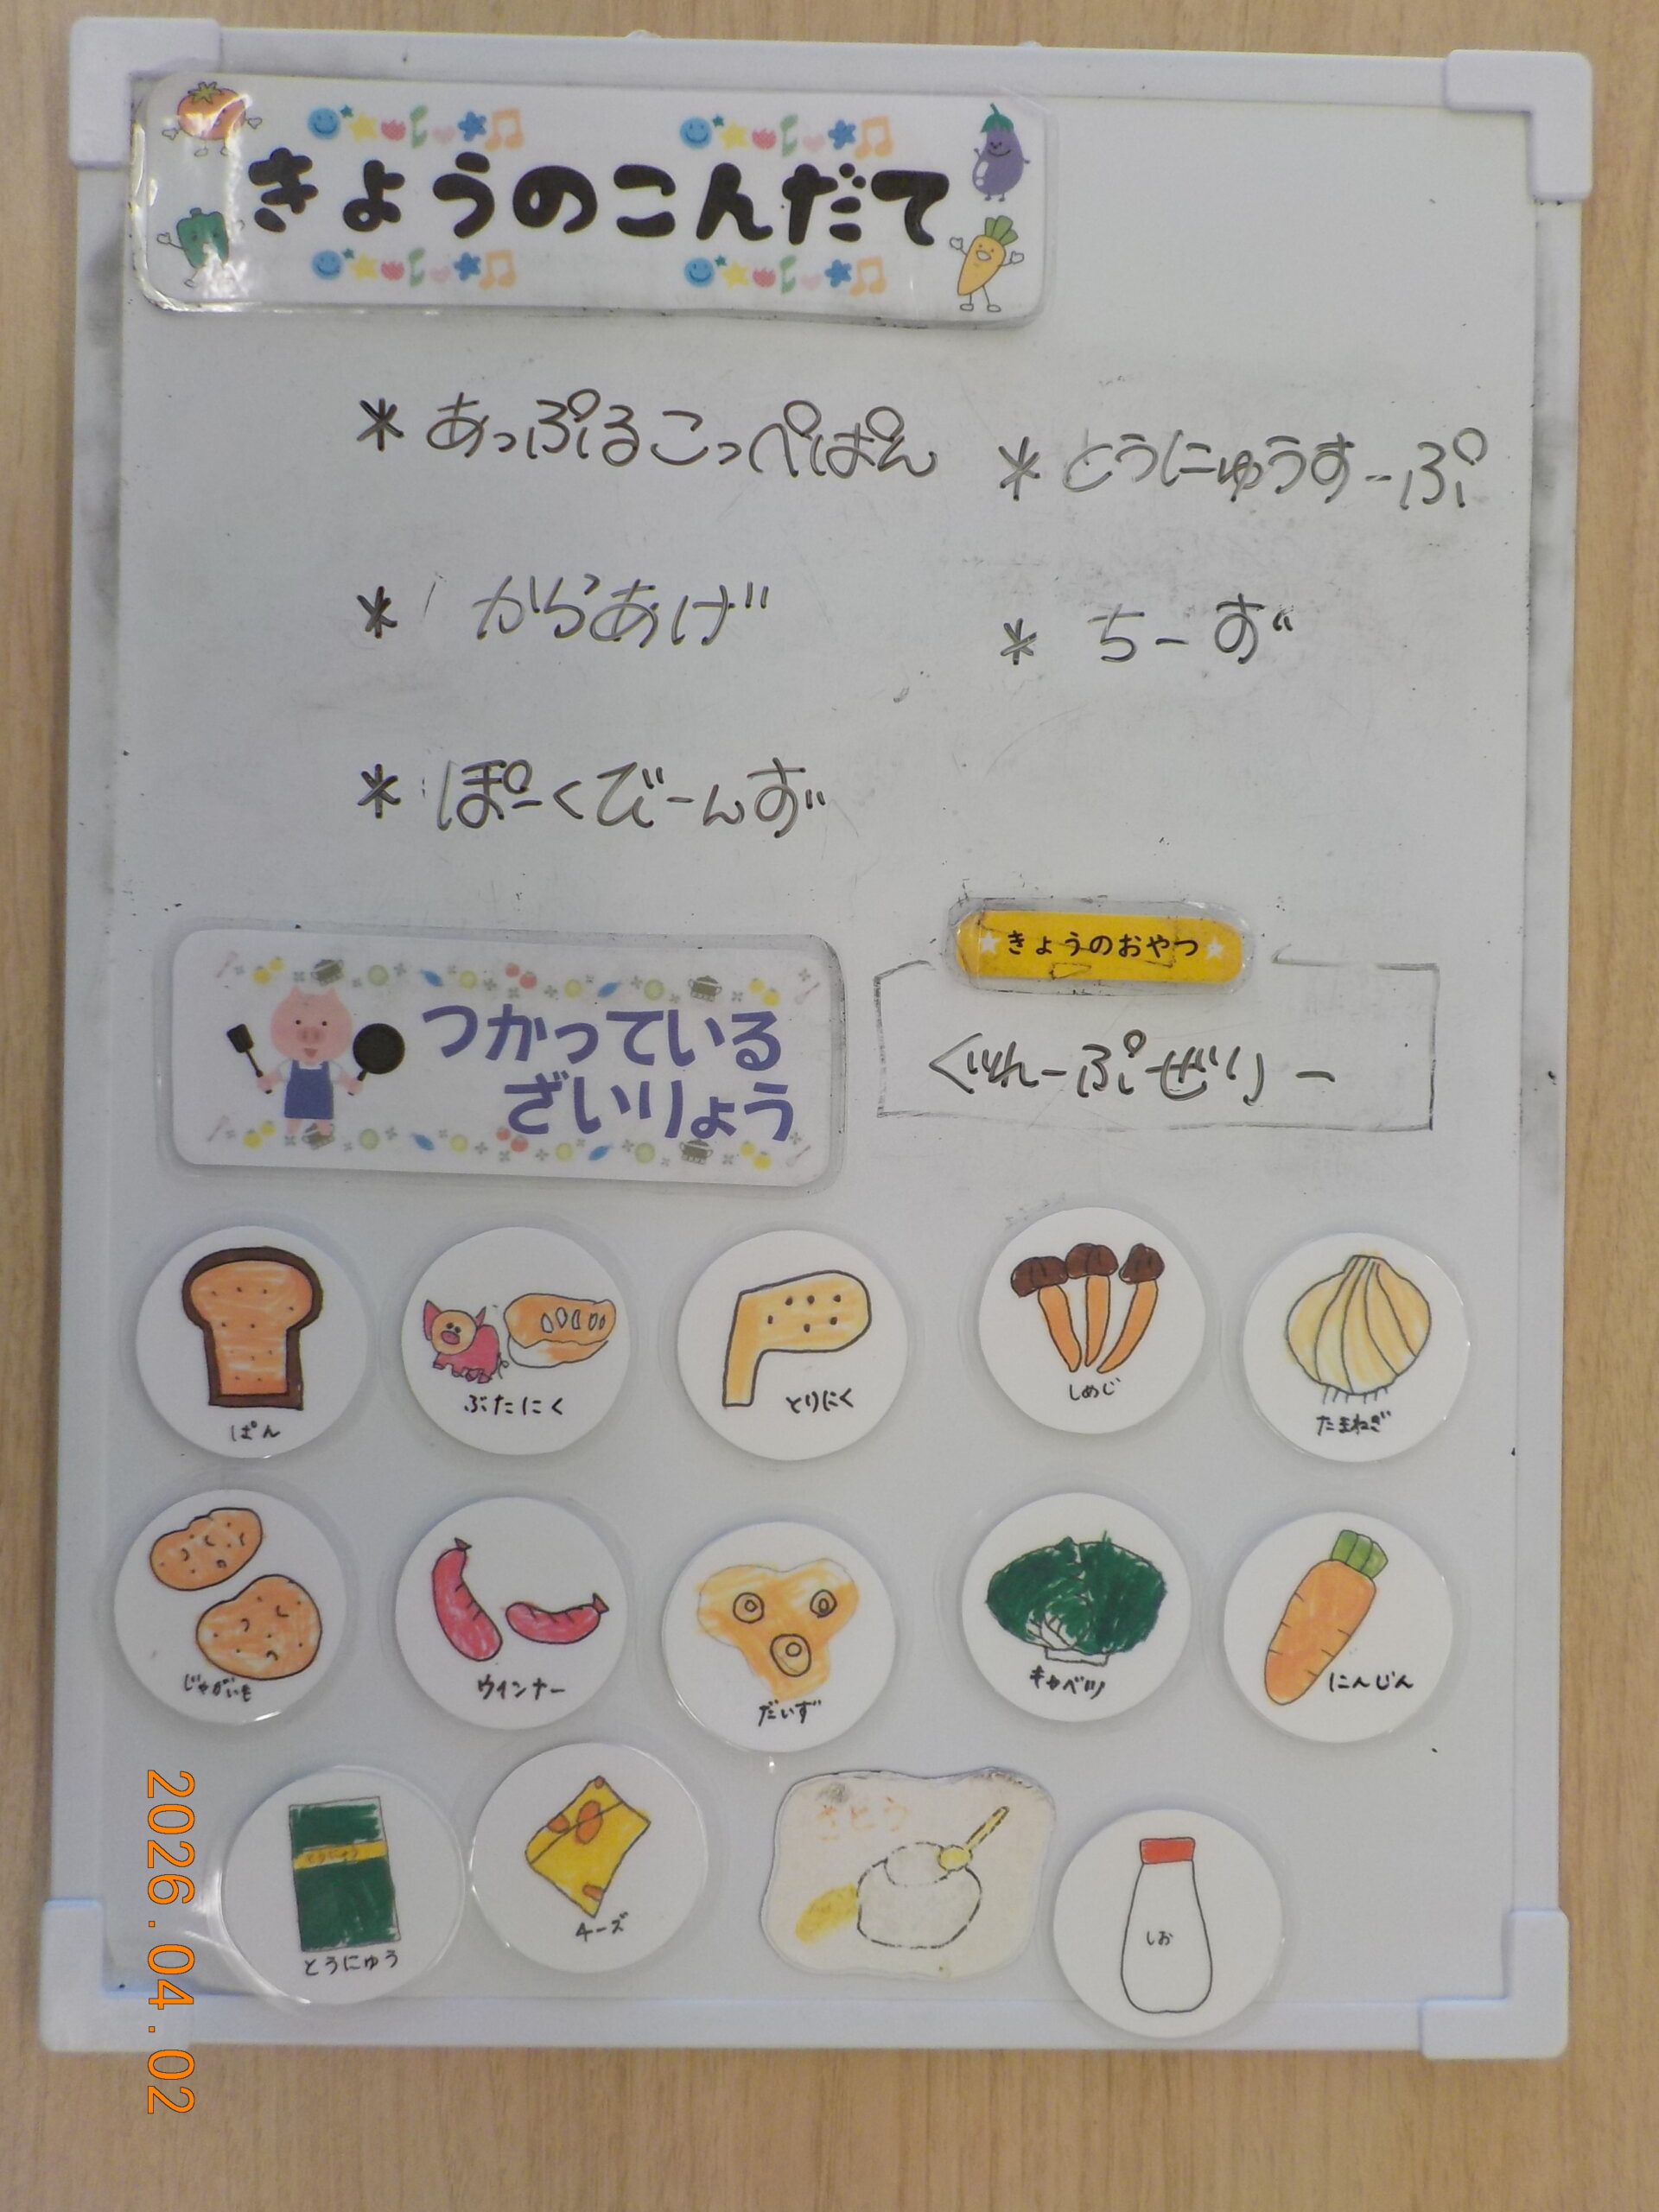 きょうのこんだて
* あっぷるこっぺぱん
* とうにゅうすーぷ
* からあげ
* ちーず
* ぽーくびーんず
★きょうのおやつ★
ぐれーぷぜりー
つかっている
ざいりょう
ぱん
ぶたにく
とりにく
しめじ
たまねぎ
じゃがいも
ウインナー
だいず
キャベツ
にんじん
とうにゅう
とうにゅう
チーズ
さとう
しお
2026.04.02